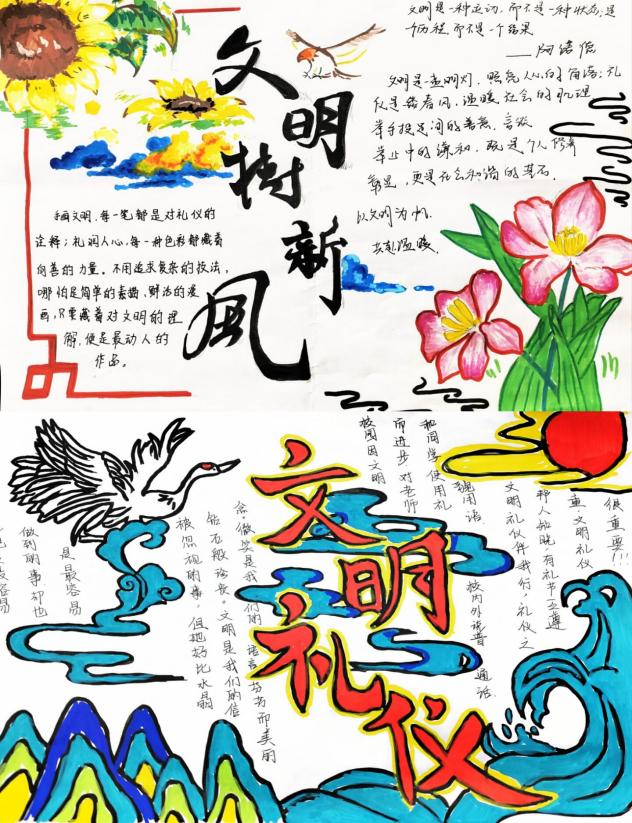 文明树新风
文明是一种运动,而不是一种状态;是
一个历程,而不是一个结果
文明是盏明灯,照亮人心的角落;礼
仪是缕春风,温暖社会的肌理
举手投足间的善意、言谈
举止中的谦和,既是个人修养
彰显,更是社会和谐的基石。
以文明为帆,
去赴温暖。
手画文明,每一笔都是对礼仪的
诠释;礼润人心,每一种色彩都藏着
向善的力量。不用追求复杂的技法,
哪怕是简单的素描、鲜活的漫
画,只要藏着对文明的理
解,便是最动人的
作品。
文明礼仪
很重要!!!
重文明礼仪
邦人皆晓有礼节互尊
文明礼仪伴我行,礼仪之
校内外说普通话
用语
和同学使用礼
而进步对老师
校园因文明
念。微笑是我们的语言芬芳而美丽
钻石般珍贵。文明是我们的信
被忽视的事,但把好比水晶
是最容易
做到的事却也